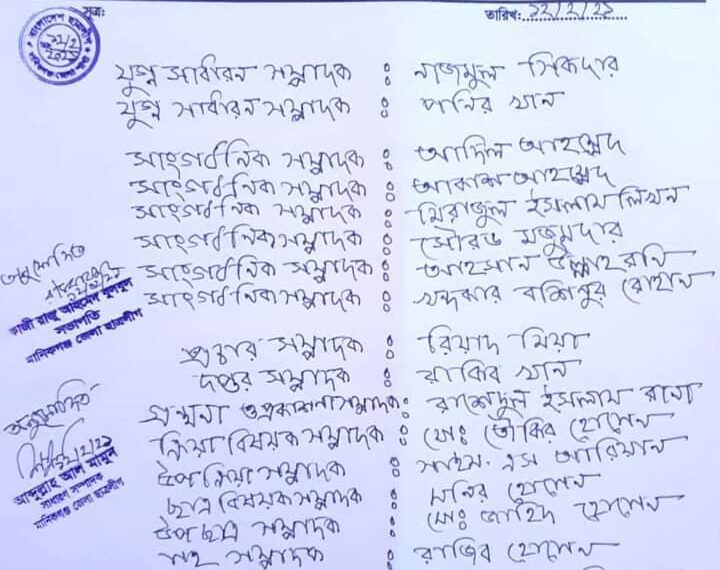 সূত্র:
তারিখ: ২২/২/২১
বাংলাদেশ ছাত্রলীগ
মানিকগঞ্জ জেলা শাখা
যুগ্ম সাধারন সম্পাদক : নাজমুল সিকদার
যুগ্ম সাধারন সম্পাদক : পনির খান
সাংগঠনিক সম্পাদক : আদিল আহম্মেদ
সাংগঠনিক সম্পাদক : আকাশ আহম্মেদ
সাংগঠনিক সম্পাদক : মিরাজুল ইসলাম লিখন
সাংগঠনিক সম্পাদক : সৌরভ মজুমদার
সাংগঠনিক সম্পাদক : আহসান উল্লাহ রনি
সাংগঠনিক সম্পাদক : খন্দকার রোহান
অনুমোদিত
কাজী রাজু আহমেদ বুলবুল
সভাপতি
মানিকগঞ্জ জেলা ছাত্রলীগ
প্রচার সম্পাদক : রিয়াদ মিয়া
দপ্তর সম্পাদক : রাকিব খান
গ্রন্থনা ও প্রকাশনা সম্পাদক : রাশেদুল ইসলাম রানা
ক্রিয়া বিষয়ক সম্পাদক : মোঃ তৌকির হোসেন
উপ ক্রিয়া সম্পাদক : এস আরিয়ান
ছাত্র বিষয়ক সম্পাদক : মনির হোসেন
উপ ছাত্র সম্পাদক : মোঃ জাহিদ হোসেন
সহ সম্পাদক : রাজিব হোসেন
অনুমোদিত
আব্দুল্লাহ আল মামুন
সাধারণ সম্পাদক
মানিকগঞ্জ জেলা ছাত্রলীগ